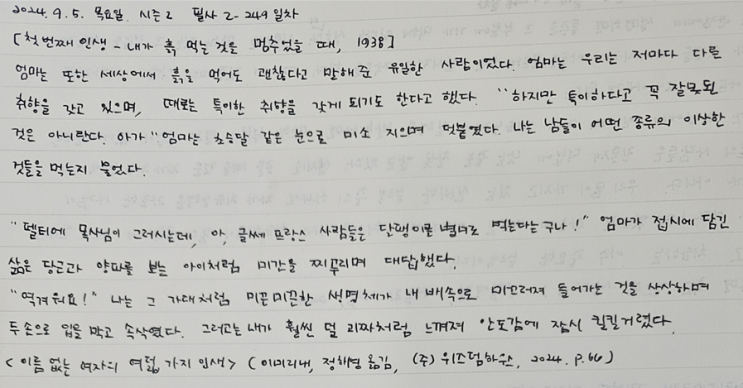 2024. 9. 5. 목요일. 시즌2 필사 2-249일차
[첫번째 인생 - 내가 흙 먹는 것을 멈추었을 때, 1938]
엄마는 또한 세상에서 흙을 먹어도 괜찮다고 말해준 유일한 사람이었다. 엄마는 우리는 저마다 다른
취향을 갖고 있으며, 때로는 특이한 취향을 갖게 되기도 한다고 했다. "하지만 특이하다고 꼭 잘못된
것은 아니란다. 아가" 엄마는 초승달 같은 눈으로 미소 지으며 덧붙였다. 나는 남들이 어떤 종류의 이상한
것들을 먹는지 물었다.
"델터에 목사님이 그러시는데, 아, 글쎄 프랑스 사람들은 단팽이를 별미로 먹는다는구나!" 엄마가 접시에 담긴
삶은 당근과 양파를 보는 아이처럼 미간을 찌푸리며 대답했다.
"역겨워요!" 나는 그 가대처럼 미끈미끈한 생명체가 내 뱃속으로 미끄러져 들어가는 것을 상상하며
두 손으로 입을 막고 속삭였다. 그러고는 내가 훨씬 덜 괴짜처럼 느껴져 안도감에 잠시 킬킬거렸다.
<이름 없는 여자의 여덟 가지 인생> (이미리내, 정해영 옮김, (주) 위즈덤하우스, 2024. P.66)